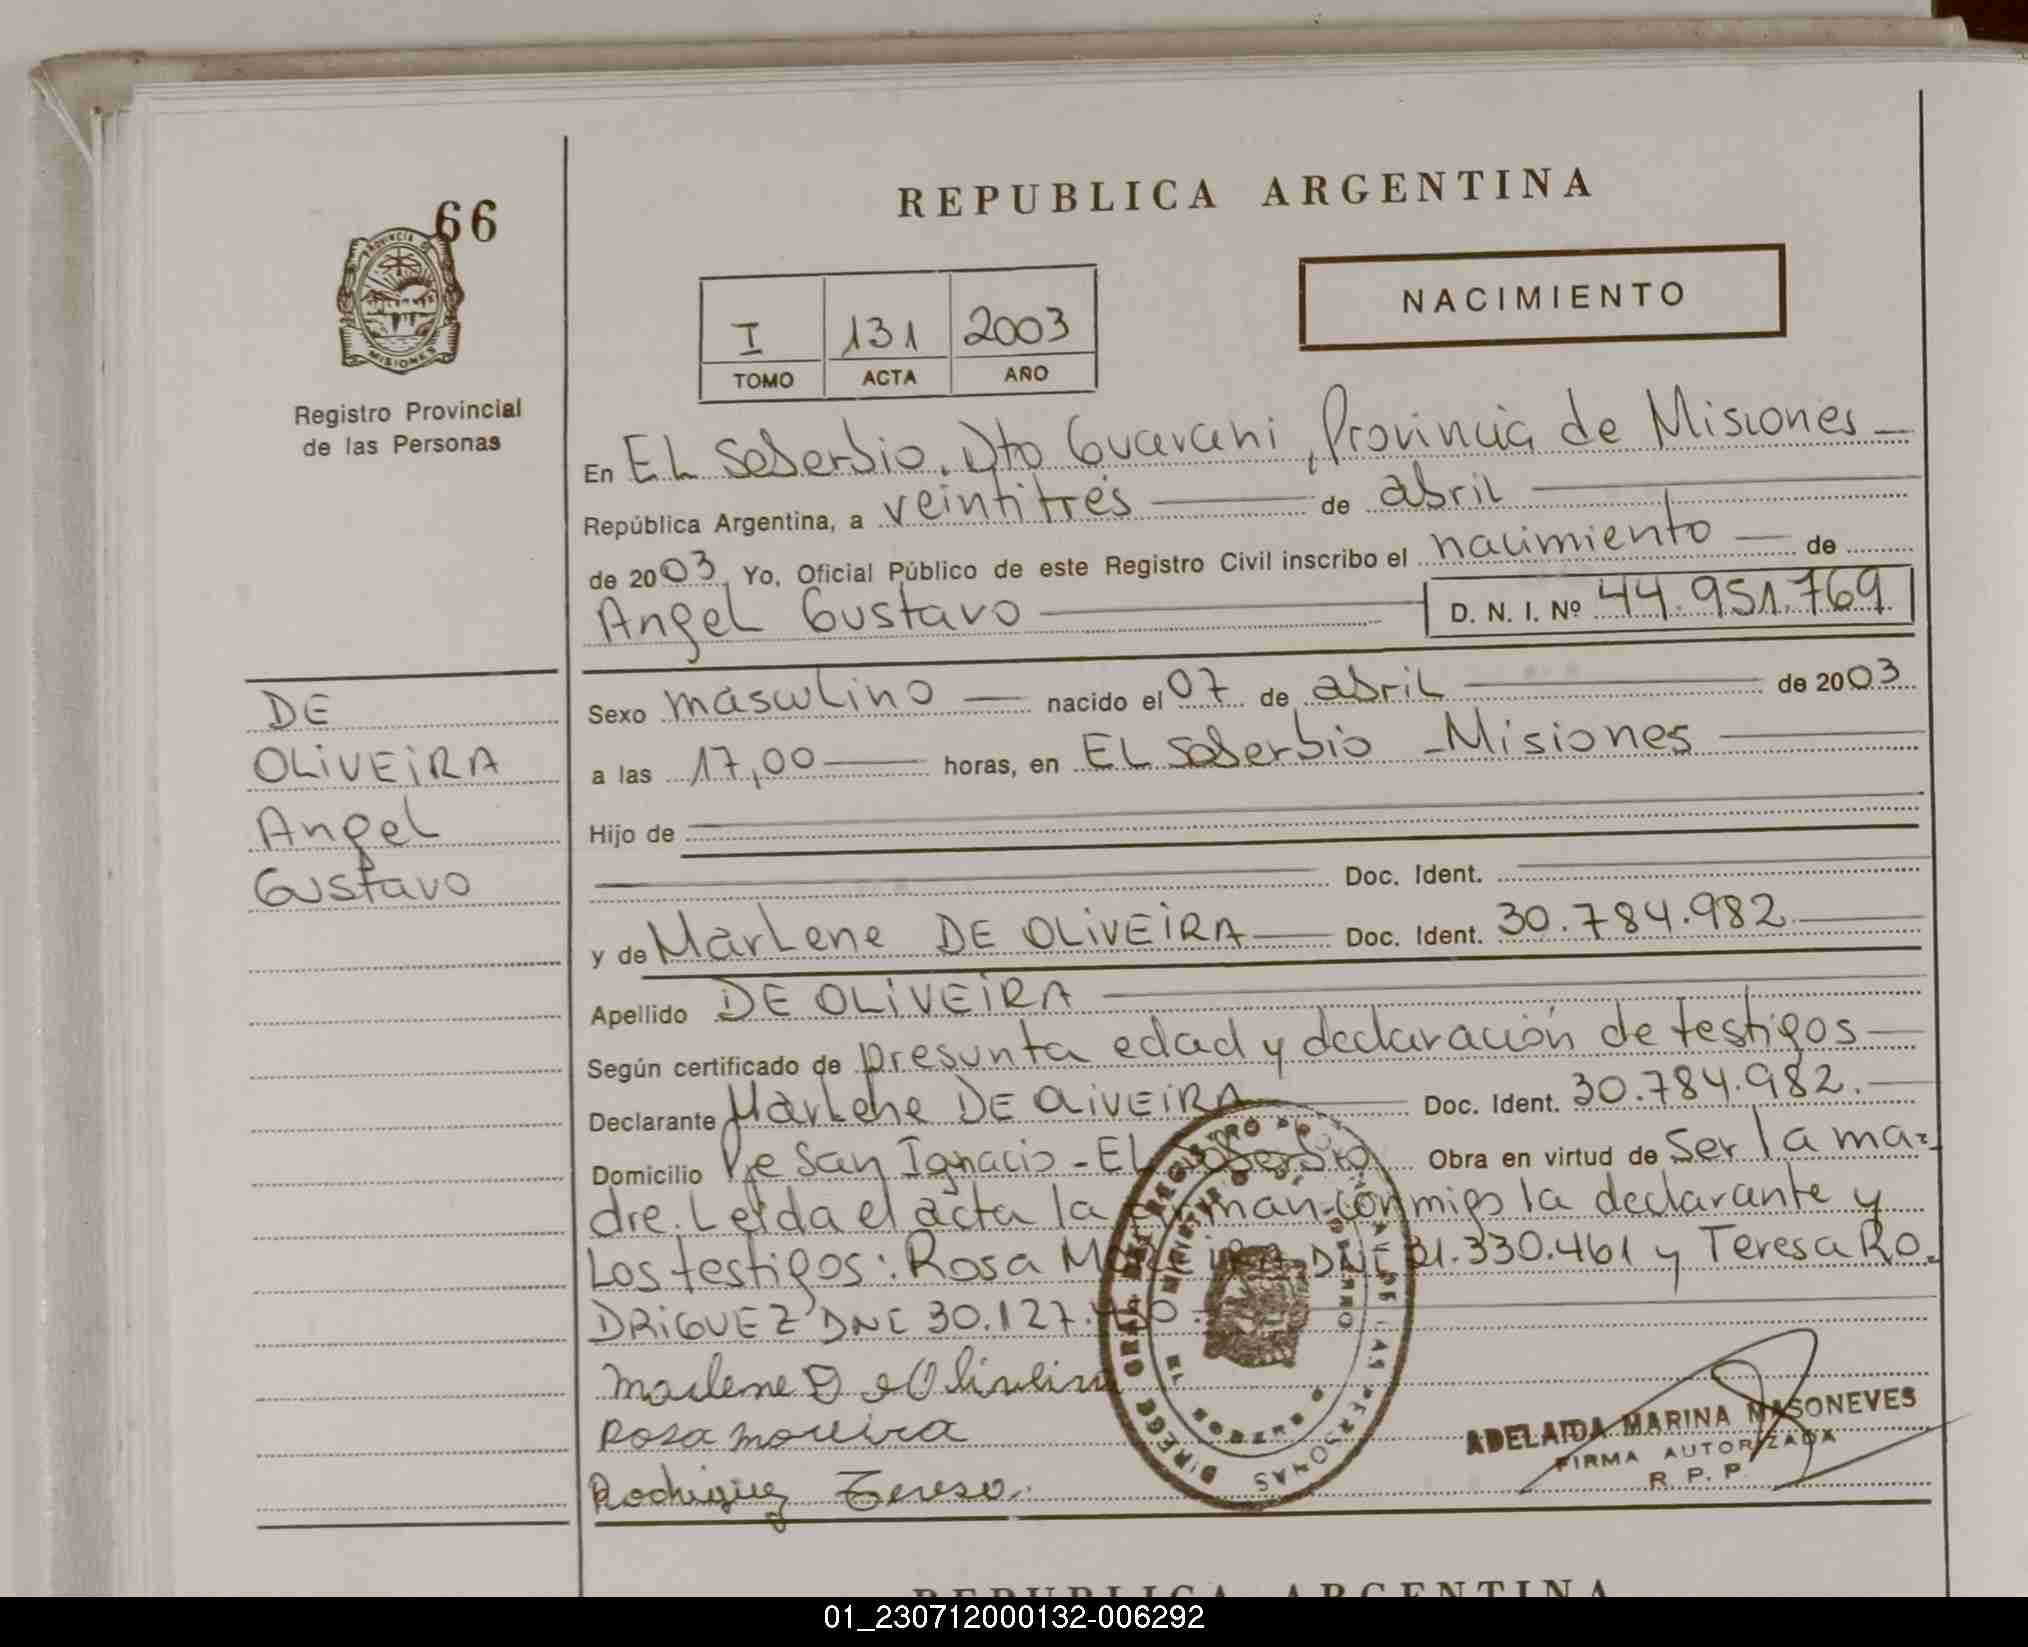 66
PROVINCIA DE
MISIONES
Registro Provincial
de las Personas
REPUBLICA ARGENTINA
NACIMIENTO
I 131 2003
TOMO ACTA AÑO
En EL Soberbio. Dto Guarani, Provincia de Misiones
República Argentina, a veintitrés de abril
de 2003 Yo, Oficial Público de este Registro Civil inscribo el nacimiento de
Angel Gustavo D. N. I. Nº 44.951.769
DE
OLIVEIRA
Angel
Gustavo
Sexo masculino nacido el 07 de abril de 2003
a las 17,00 horas, en EL Soberbio - Misiones
Hijo de
Doc. Ident.
y de Marlene DE OLIVEIRA Doc. Ident. 30.784.982
Apellido DE OLIVEIRA
Según certificado de presunta edad y declaración de testigos
Declarante Marlene DE OLIVEIRA Doc. Ident. 30.784.982.
Domicilio Pje San Ignacio - EL Soberbio Obra en virtud de Ser la ma=
dre. Leída el acta la firman conmigo la declarante y
Los testigos: Rosa MOREIRA DNI 21.330.461 y Teresa RO=
DRIGUEZ DNI 30.127.
Marlene D e Oliveira
Rosa moreira
Rodriguez Teresa.
ADELAIDA MARINA MASONEVES
FIRMA AUTORIZADA
R. P. P.
REPUBLICA ARGENTINA
01_230712000132-006292